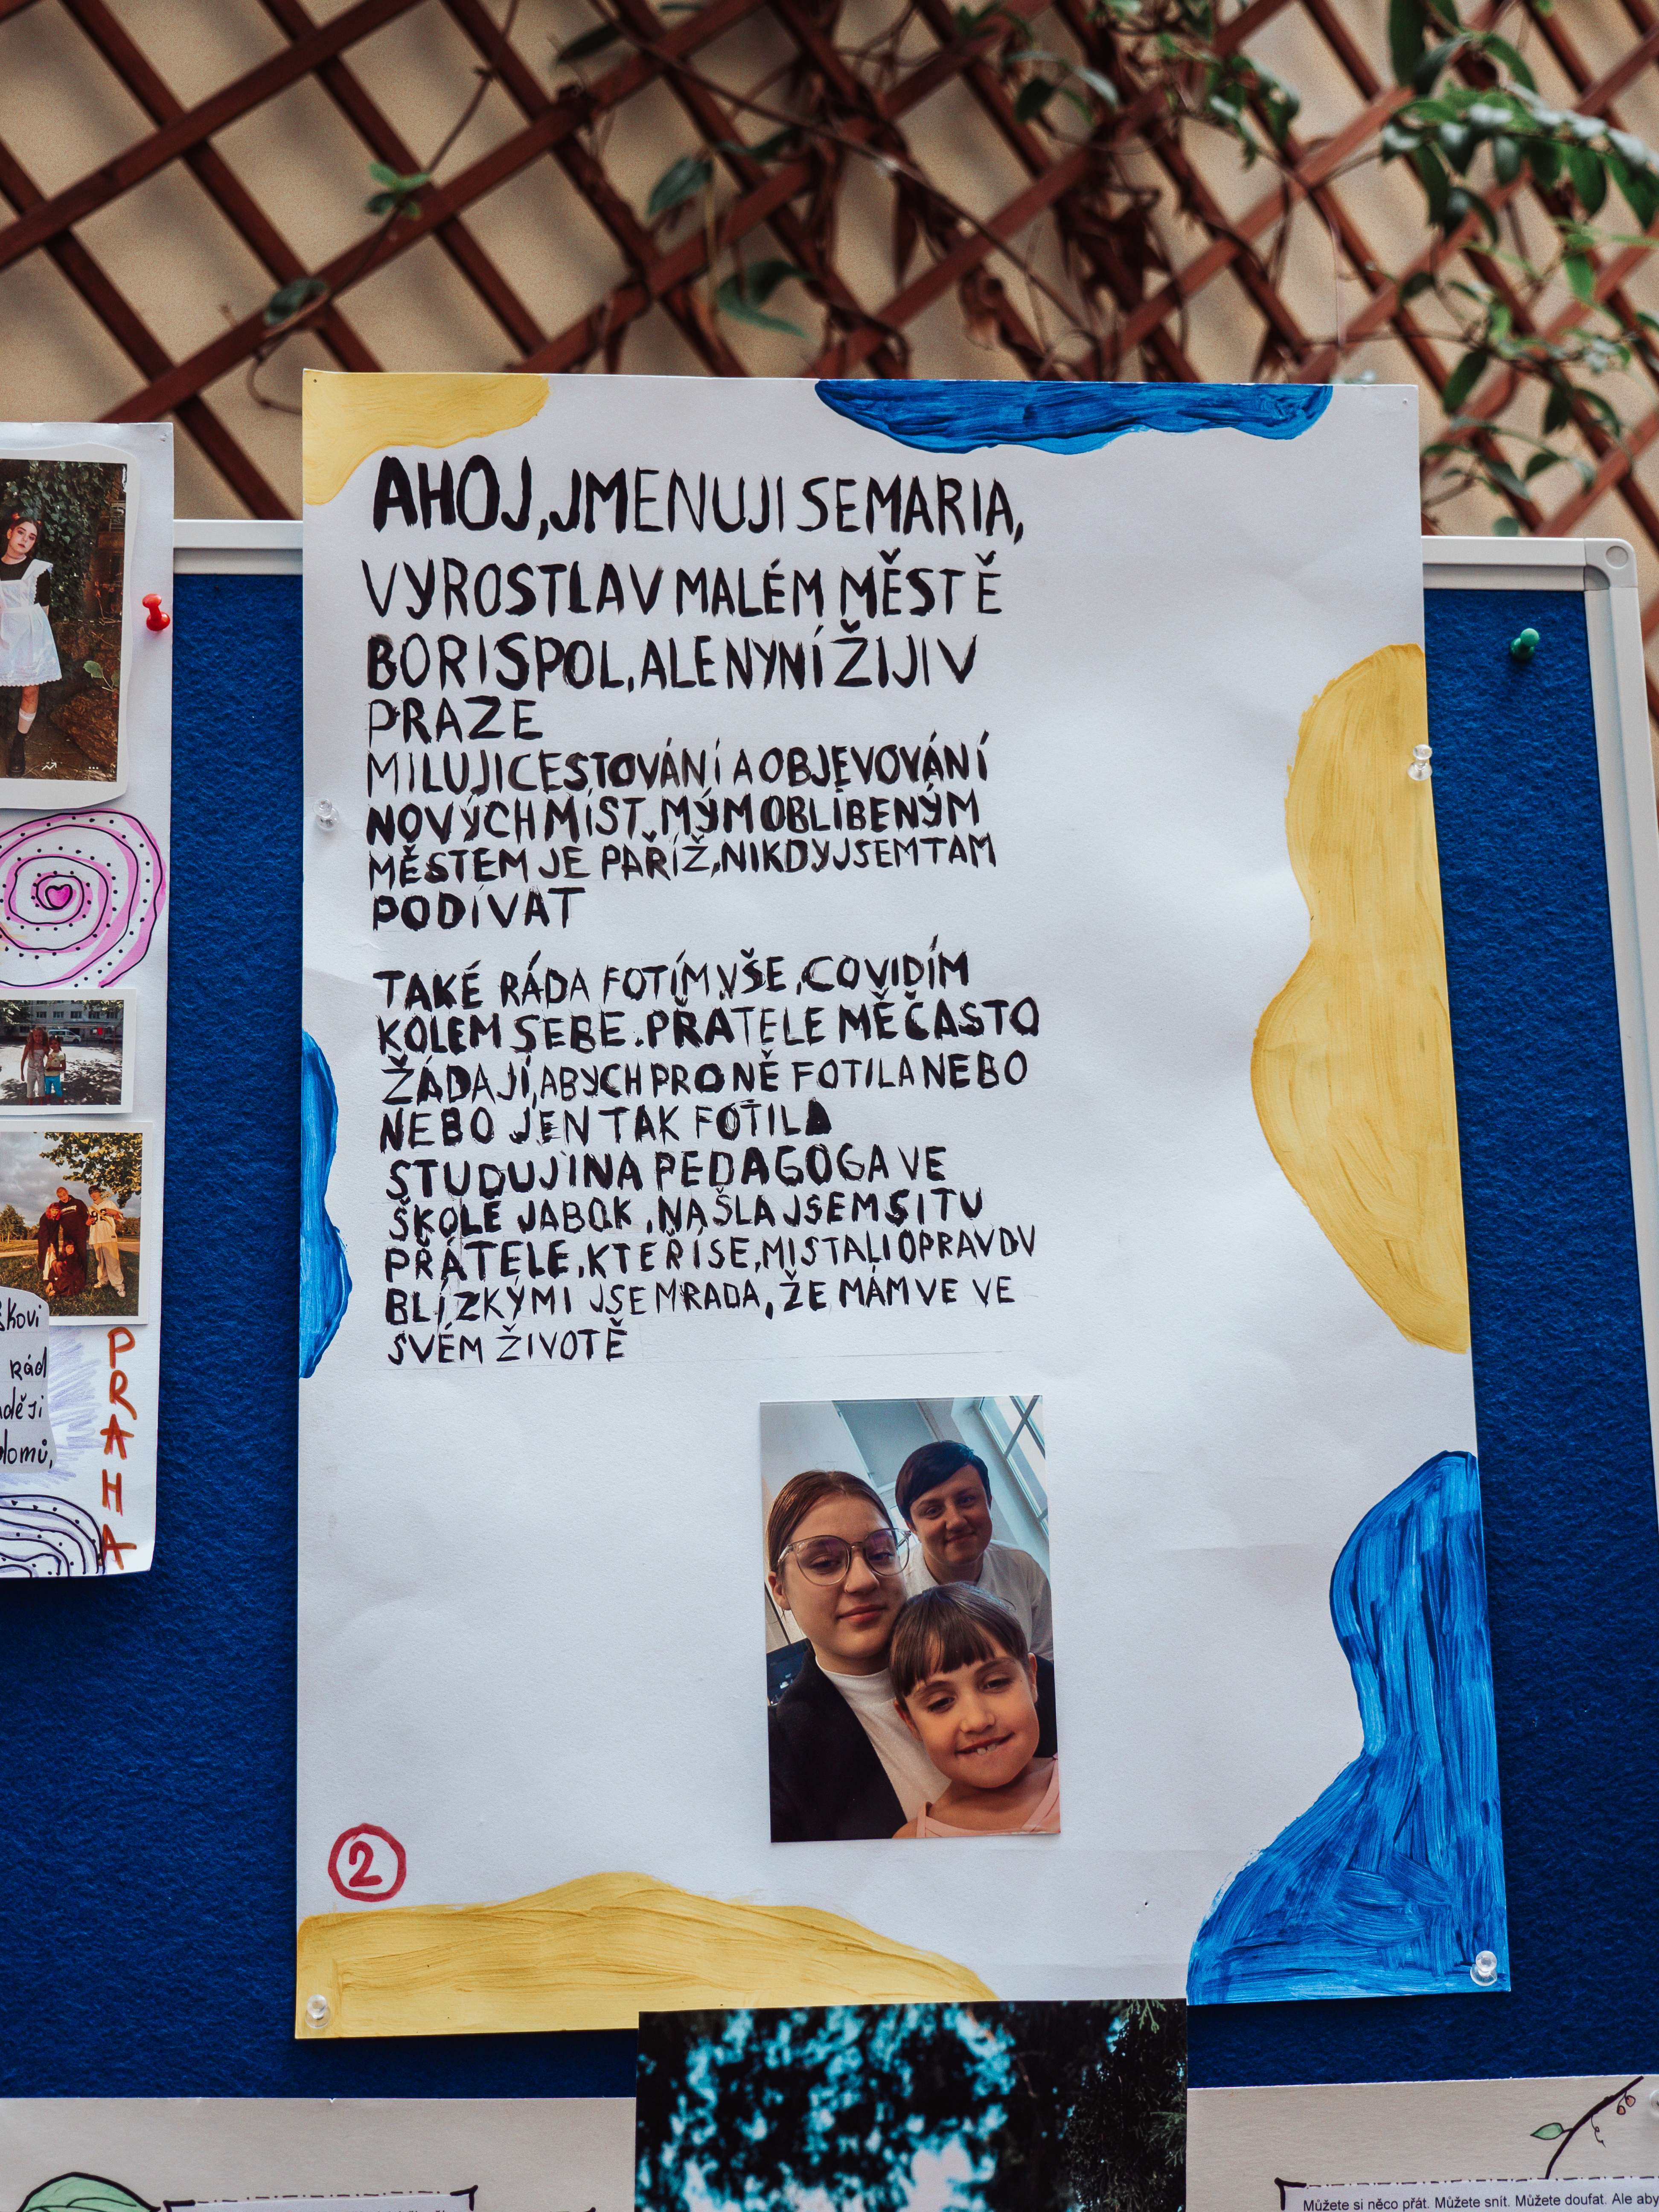 AHOJ, JMENUJI SE MARIA,
VYROSTLA V MALÉM MĚSTĚ
BORISPOL, ALE NYNÍ ŽIJI V
PRAZE
MILUJI CESTOVÁNÍ A OBJEVOVÁNÍ
NOVÝCH MÍST. MÝM OBLÍBENÝM
MĚSTEM JE PAŘÍŽ, NIKDY JSEM TAM
PODÍVAT
TAKÉ RÁDA FOTÍM VŠE, CO VIDÍM
KOLEM SEBE. PŘATELE MĚ ČASTO
ŽÁDAJÍ, ABYCH PRO NĚ FOTILA NEBO
NEBO JEN TAK FOTILA
STUDUJI NA PEDAGOGA VE
ŠKOLE JABOK, NAŠLA JSEM SI TU
PŘÁTELE, KTEŘÍ SE, MI STALI OPRAVDU
BLÍZKÝMI JSEM RADA, ŽE MÁM VE VE
SVÉM ŽIVOTĚ
2
škovi
rád
ději
domů,
PRAHA
Můžete si něco přát. Můžete snít. Můžete doufat. Ale aby